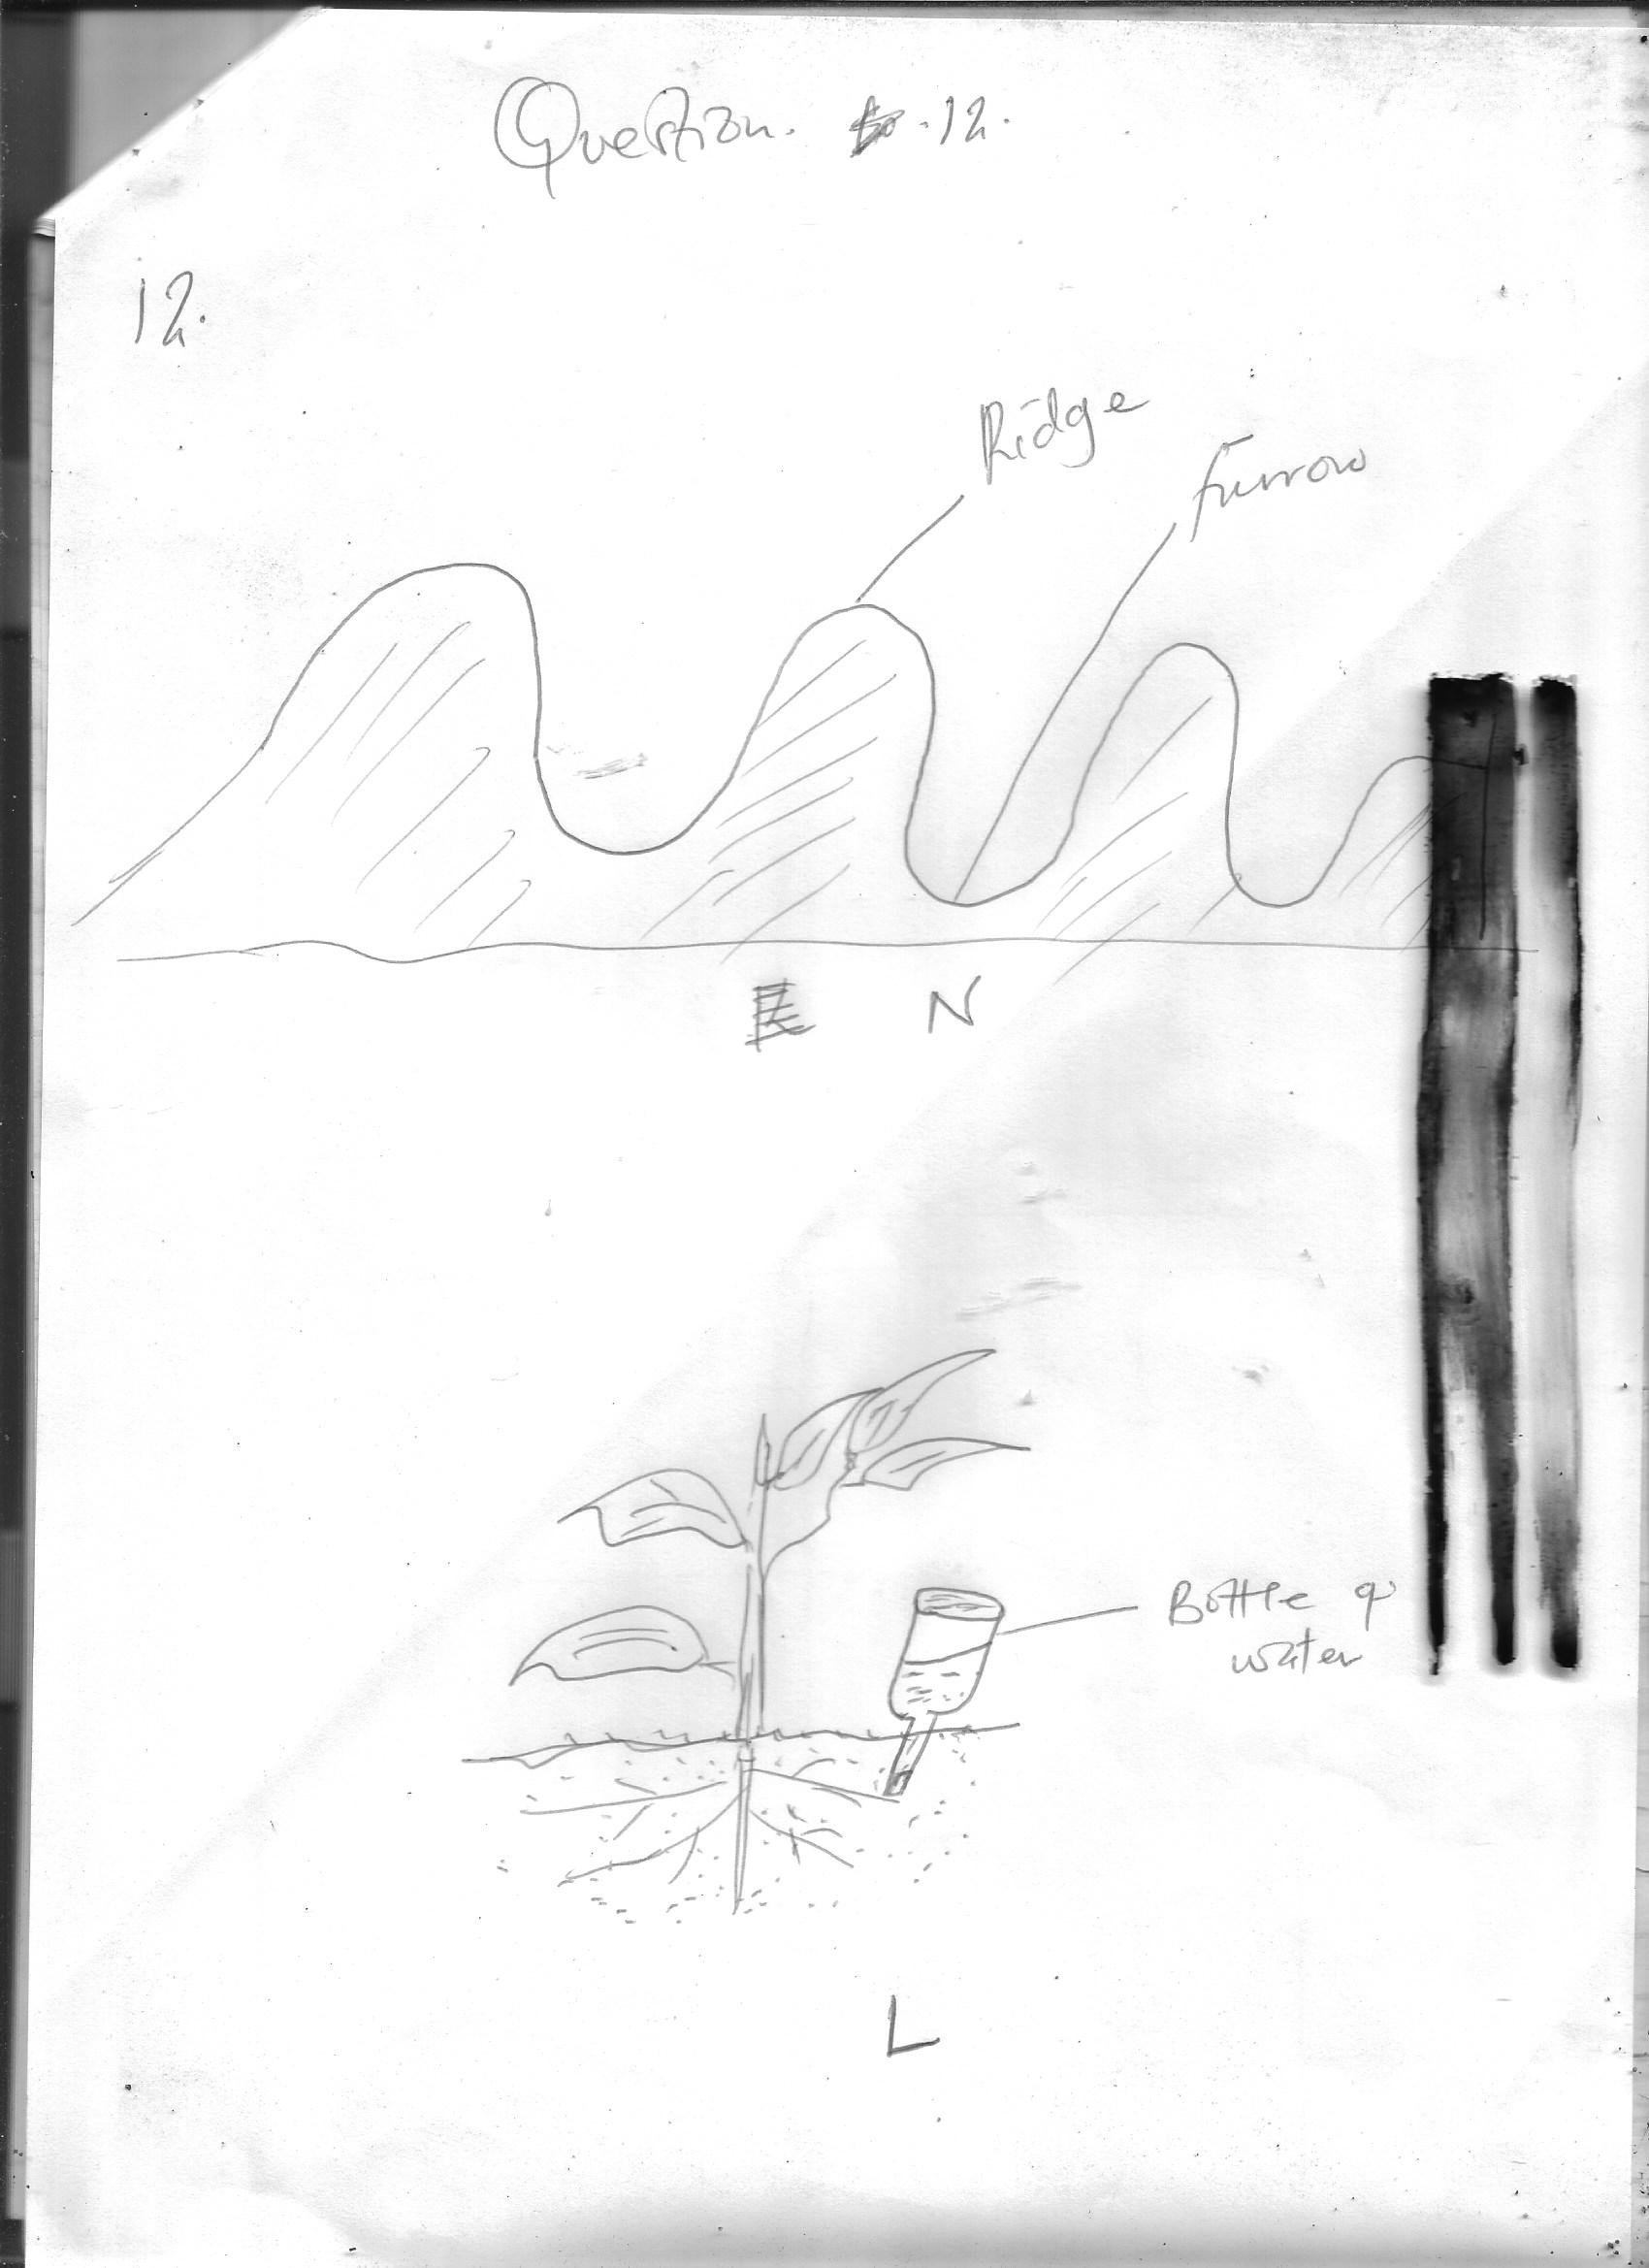 Question. .12.
12.
Ridge
furrow
N
Bottle of
water
L